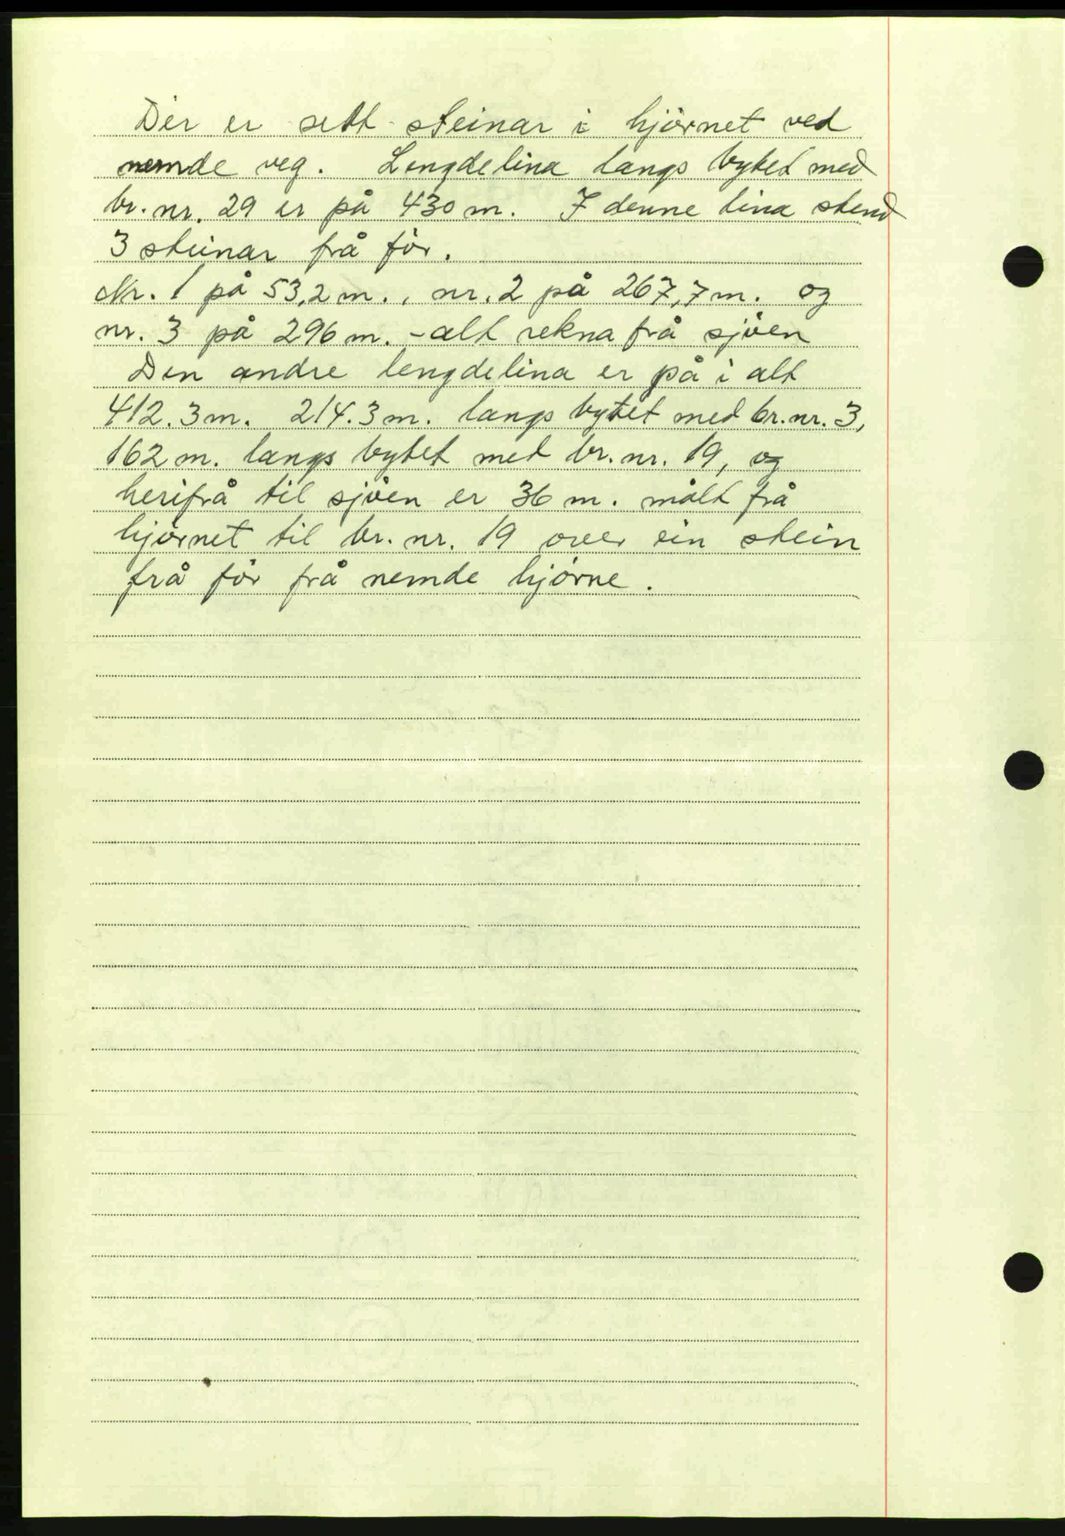 Der er sett steinar i hjörnet ved
nemde veg. Lengdelina langs bytet med
br. nr. 29 er på 430 m. I denne lina stend
3 steinar frå för.
Nr. 1 på 53,2 m., nr. 2 på 267,7 m. og
nr. 3 på 296 m. - alt rekna frå sjöen
Den andre lengdelina er på i alt
412.3 m. 214.3 m. langs bytet med br. nr. 3,
162 m. langs bytet med br. nr. 19, og
herifrå til sjöen er 36 m. målt frå
hjörnet til br. nr. 19 over ein stein
frå för frå nemde hjörne.